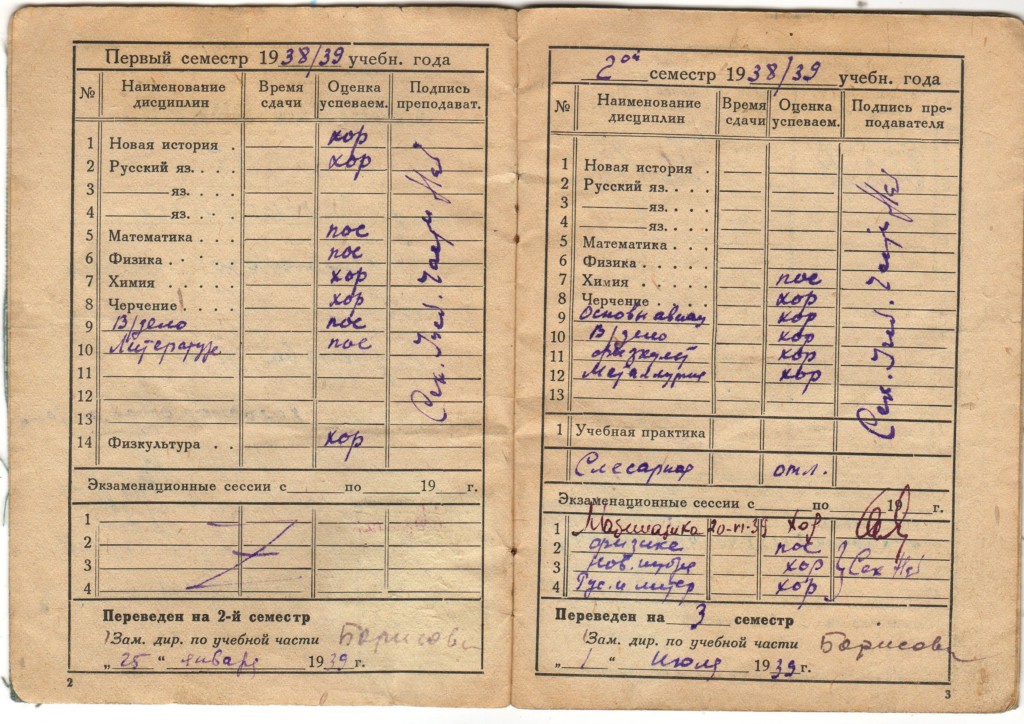 Первый семестр 1938/39 учебн. года
№ Наименование дисциплин Время сдачи Оценка успеваем. Подпись преподават.
1 Новая история . хор
2 Русский яз. . . . хор
3 яз. . . .
4 яз. . . .
5 Математика . . . пос
6 Физика . . . . пос
7 Химия . . . . хор
8 Черчение . . . хор
9 В/дело пос
10 Литература пос
11
12
13
14 Физкультура . . хор
Сек. Учеб. Части
Экзаменационные сессии с по 19 г.
1
2
3
4
Переведен на 2-й семестр
Зам. дир. по учебной части Борисова
„25“ января 1939 г.
2
2ой семестр 1938/39 учебн. года
№ Наименование дисциплин Время сдачи Оценка успеваем. Подпись преподавателя
1 Новая история .
2 Русский яз. . . .
3 яз. . . .
4 яз. . . .
5 Математика . . .
6 Физика . . . .
7 Химия . . . . пос
8 Черчение . . . . хор
9 Основы авиац хор
10 В/дело хор
11 Физкульт хор
12 Металлургия хор
13
Сек. Учеб. Части
1 Учебная практика
Слесарная отл.
Экзаменационные сессии с по 19 г.
1 Математика 20-VI-39 хор
2 Физика пос
3 хор Сек
4 Рус. и литер хор
Переведен на 3 семестр
Зам. дир. по учебной части Борисова
„1“ Июля 1939 г.
3